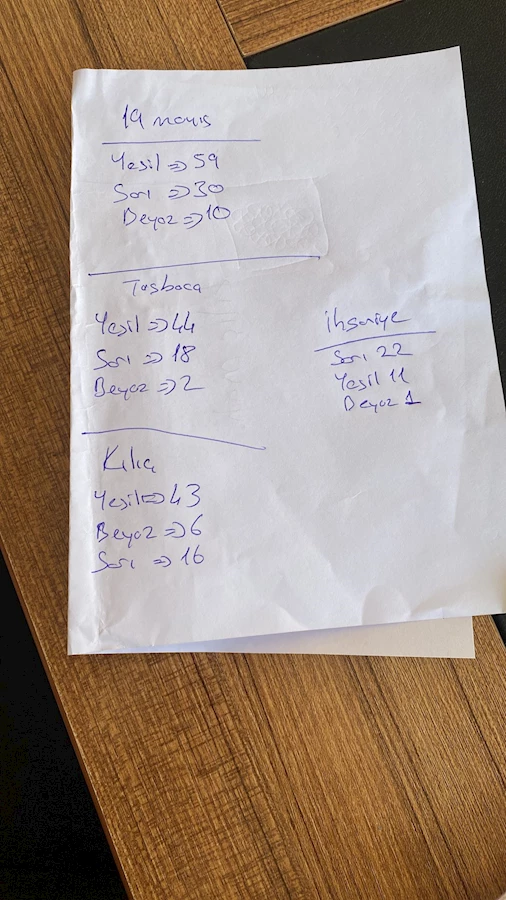 19 mayıs
Yeşil => 59
Sarı => 30
Beyaz => 10
Taşbaca
Yeşil => 44
Sarı => 18
Beyaz => 2
Kılıç
Yeşil => 43
Beyaz => 6
Sarı => 16
ihsaniye
Sarı 22
Yeşil 11
Beyaz 1